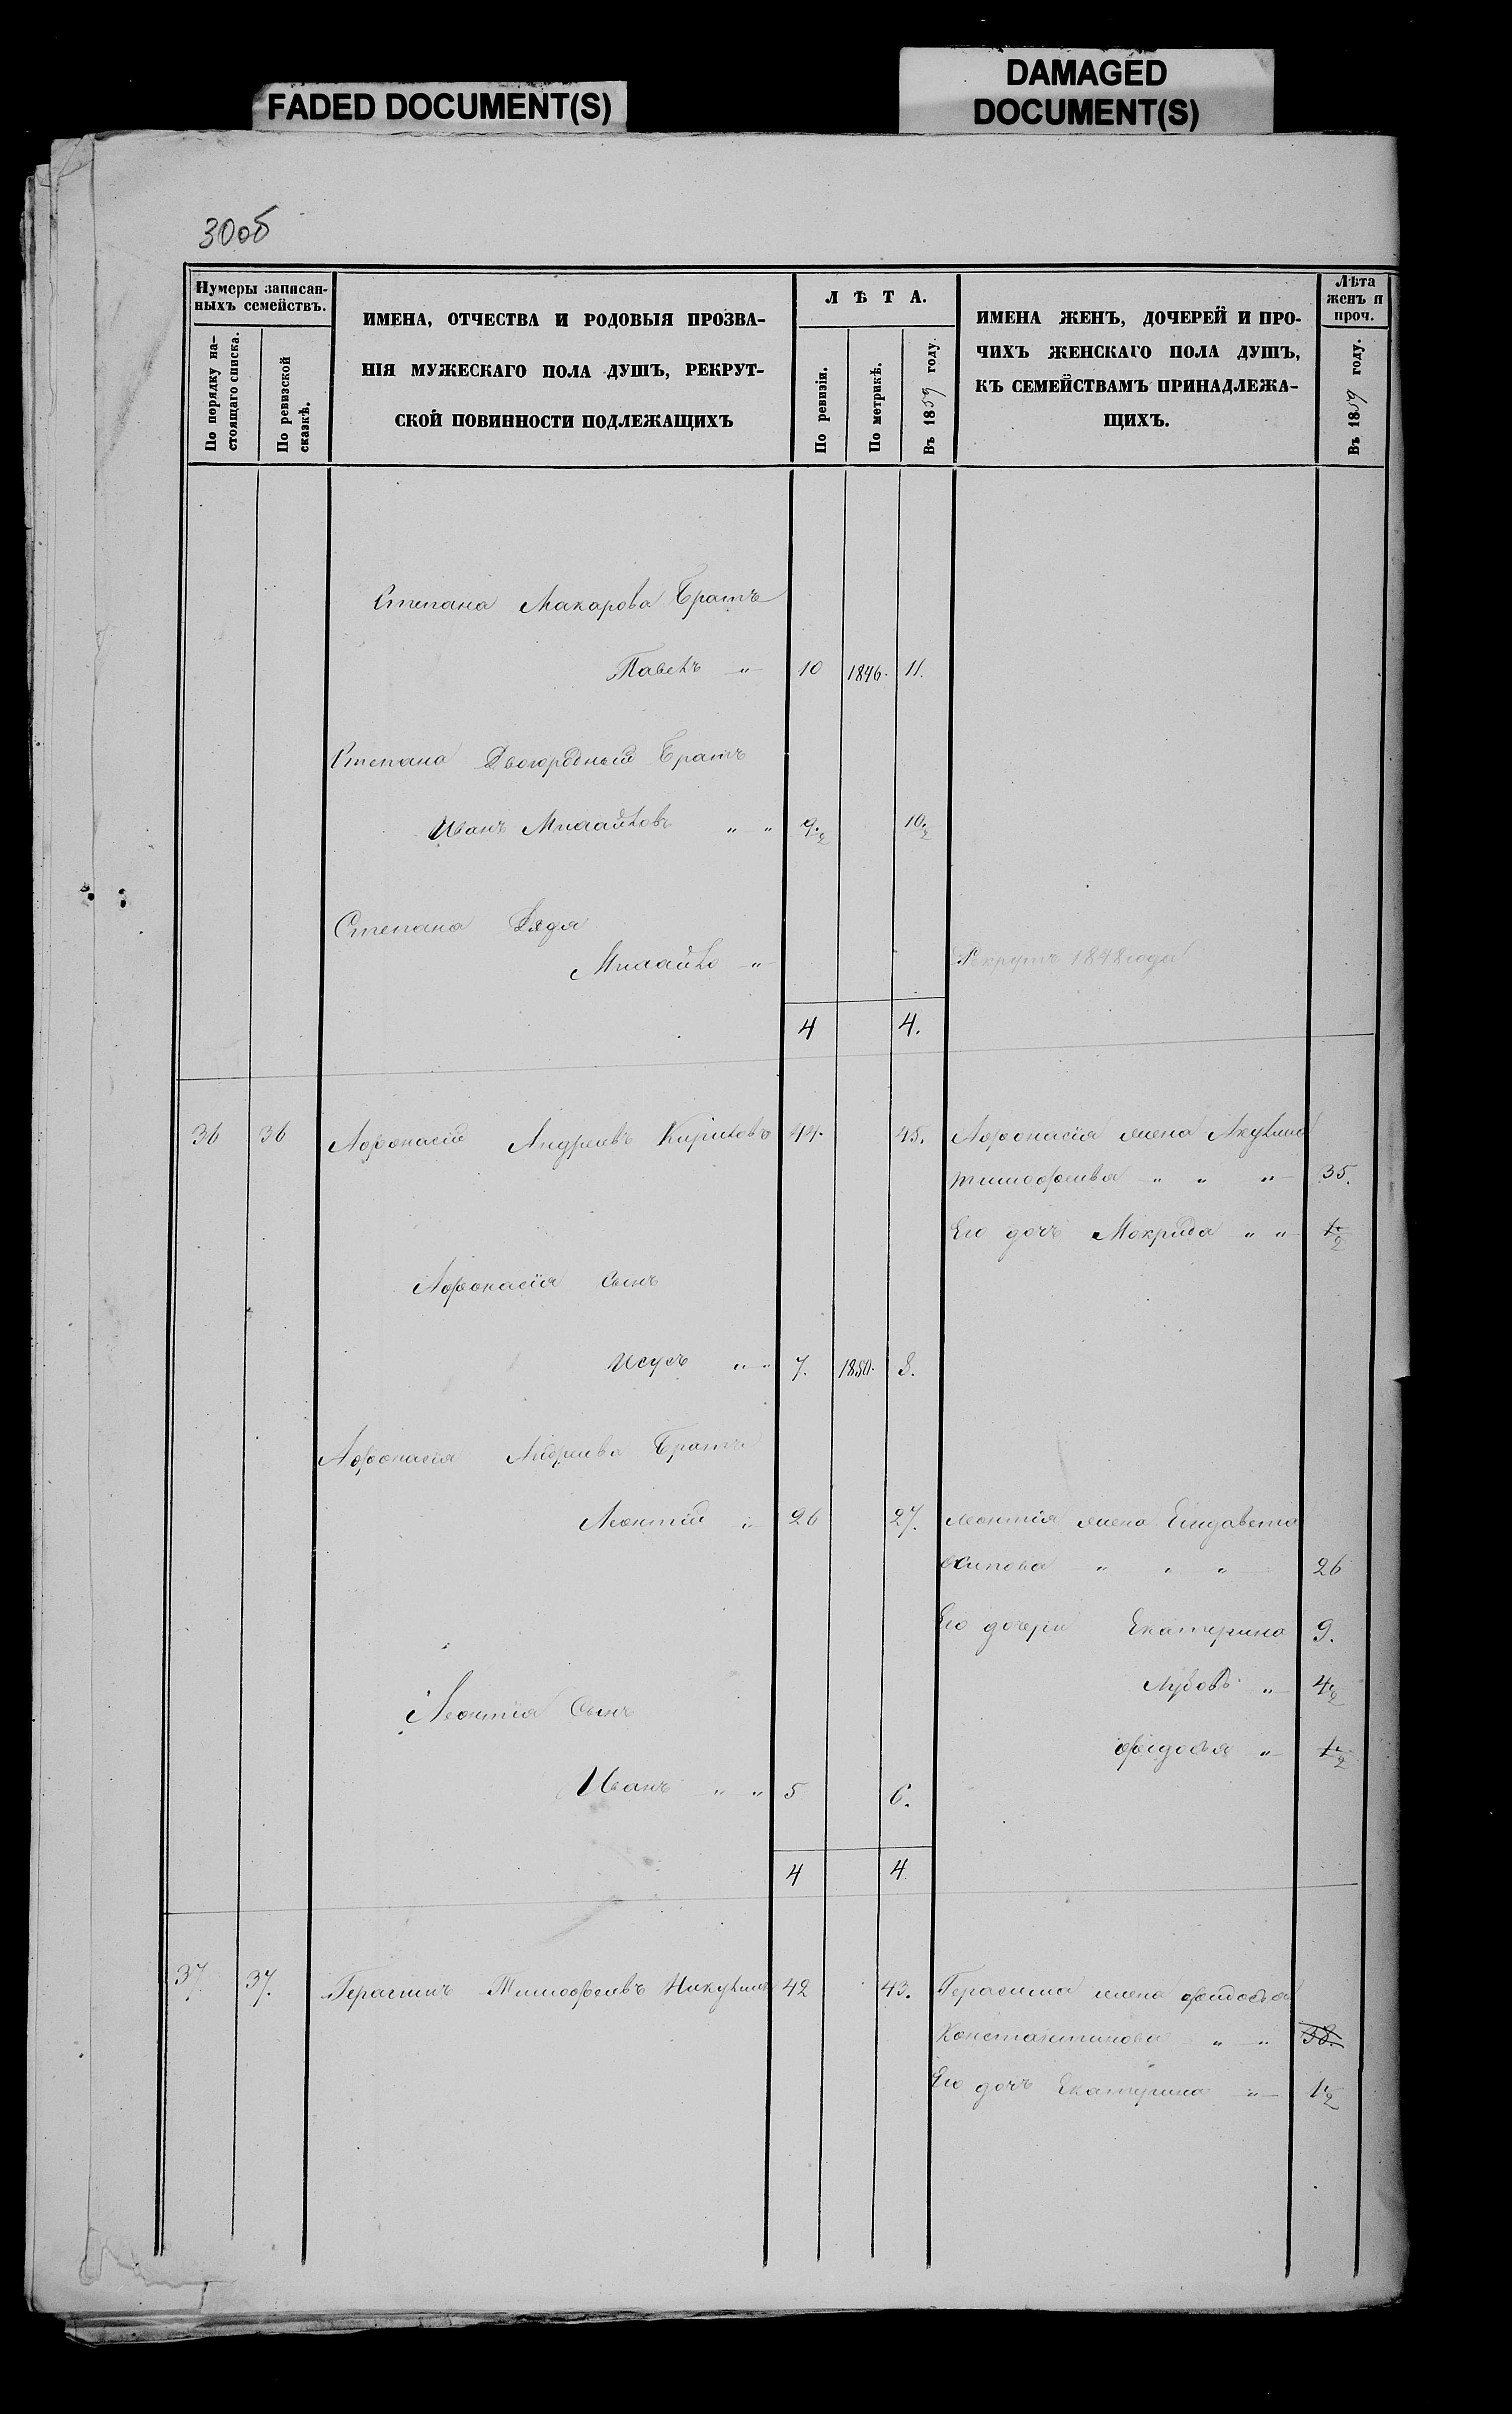 FADED DOCUMENT(S)
DAMAGED
DOCUMENT(S)
30об
Нумеры записан-
ныхъ семействъ.
По порядку на-
стоящаго списка.
По ревизской
сказкѣ.
ИМЕНА, ОТЧЕСТВА И РОДОВЫЯ ПРОЗВА-
НІЯ МУЖЕСКАГО ПОЛА ДУШЪ, РЕКРУТ-
СКОЙ ПОВИННОСТИ ПОДЛЕЖАЩИХЪ
ЛѢТА.
По ревизіи.
По метрикѣ.
Въ 1859 году.
ИМЕНА ЖЕНЪ, ДОЧЕРЕЙ И ПРО-
ЧИХЪ ЖЕНСКАГО ПОЛА ДУШЪ,
КЪ СЕМЕЙСТВАМЪ ПРИНАДЛЕЖА-
ЩИХЪ.
Лѣта
женъ и
проч.
Въ 1859 году.
Степана Макарова Братъ
Павелъ " 10 1846. 11.
Степана Двоюродный Братъ
Иванъ Михайловъ " " 9.½ 10.½
Степана Дядя
Михайло " Рекрутъ 1848 года
4 4.
36 36 Афонасій Андреевъ Кириловъ 44. 45. Афонасія жена Акулина
тимофеева " " " 35.
Его дочь Мокрида " " ½
Афонасія Сынъ
" " 7. 1850. 8.
Афонасія Андреева Братъ
Леонтій " 26 27. Леонтія жена Елизавета
Осипова " " " 26
Его дочери Екатерина 9.
Любовь " 4½
Федосья " ½
Леонтія Сынъ
Иванъ " " 5 6.
4 4.
37. 37. Герасимъ Тимофеевъ Никулинъ 42 43. Герасима жена федосья
Константинова " " 38.
Его дочь Екатерина " 1½